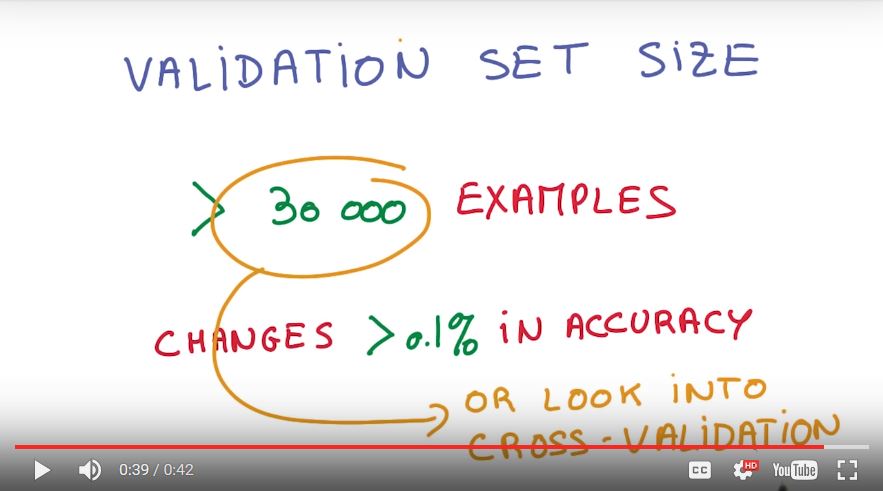 VALIDATION SET SIZE
> 30 000 EXAMPLES
CHANGES >0.1% IN ACCURACY
OR LOOK INTO
CROSS-VALIDATION
0:39 / 0:42
CC
HD
YouTube